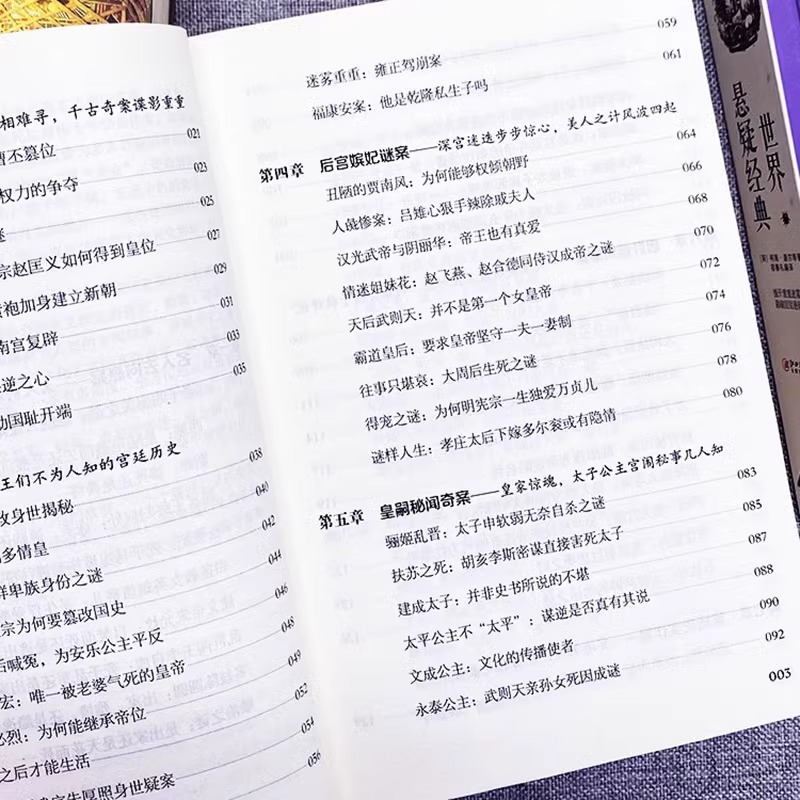 相难寻,千古奇案谍影重重
曹丕篡位 021
权力的争夺 023
谜 025
宗赵匡义如何得到皇位 027
黄袍加身建立新朝 029
南宫复辟 031
逆之心 033
国耻开端 035
王们不为人知的宫廷历史
身世揭秘 038
多情皇 040
鲜卑族身份之谜 042
宗为何要篡改国史 044
后喊冤,为安乐公主平反 046
宏:唯一被老婆气死的皇帝 048
必烈:为何能继承帝位 049
之后才能生活
厚照身世疑案 054
056
迷雾重重:雍正驾崩案 059
福康安案:他是乾隆私生子吗 061
第四章 后宫嫔妃谜案——深宫迷迭步步惊心,美人之计风波四起
丑陋的贾南风:为何能够权倾朝野 064
人彘惨案:吕雉心狠手辣除戚夫人 066
汉光武帝与阴丽华:帝王也有真爱 068
情迷姐妹花:赵飞燕、赵合德同侍汉成帝之谜 070
天后武则天:并不是第一个女皇帝 072
霸道皇后:要求皇帝坚守一夫一妻制 074
往事只堪哀:大周后生死之谜 076
得宠之谜:为何明宪宗一生独爱万贞儿 078
谜样人生:孝庄太后下嫁多尔衮或有隐情 080
第五章 皇嗣秘闻奇案——皇家惊魂,太子公主宫闱秘事几人知
骊姬乱晋:太子申软弱无奈自杀之谜 083
扶苏之死:胡亥李斯密谋直接害死太子 085
建成太子:并非史书所说的不堪 087
太平公主不“太平”:谋逆是否真有其说 088
文成公主:文化的传播使者 090
永泰公主:武则天亲孙女死因成谜 092
003
世界
悬疑经典